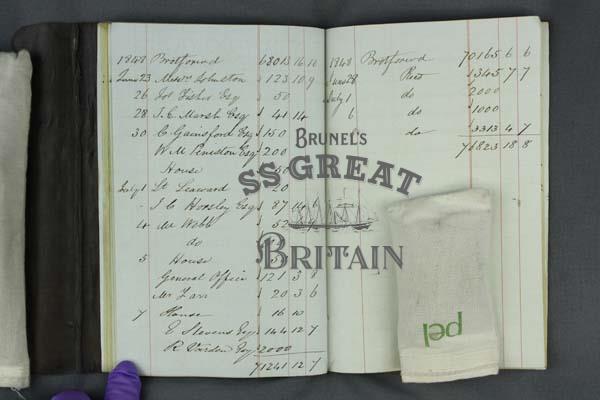 1848 Brot forward 68013 16 10
June 23 Messrs Johnston 123 10 9
26 Jos Fisher Esq 50
28 J. C. Marsh Esq 41 14
30 C. Gainsford Esq 150
W M Peniston Esq 200
House
July 1 Lt Seaward 20
J C Horsley Esq 87
4 Mr Webb 52
do
5 House
General Office 121 3 8
Mr 20 3 6
7 House 16 10
E Stevens Esq 144 12 7
R Varden Esq 2000
71241 12 7
1848 Brot forward 70165 6 6
June 28 Rec 1345 7 7
July 1 do 2000
6 do 1000
do 3313 4 7
76823 18 8
BRUNEL'S
SS GREAT
BRITAIN
pel